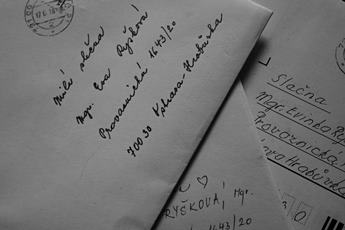 Milá slečna
Mgr. Eva Ryšková!
Provaznická 1643/20
70030 Ostrava-Hrabůvka
Slečna
Mgr. Evinka Ry
Provaznická
RYŠKOVÁ, Mgr.
1643/20